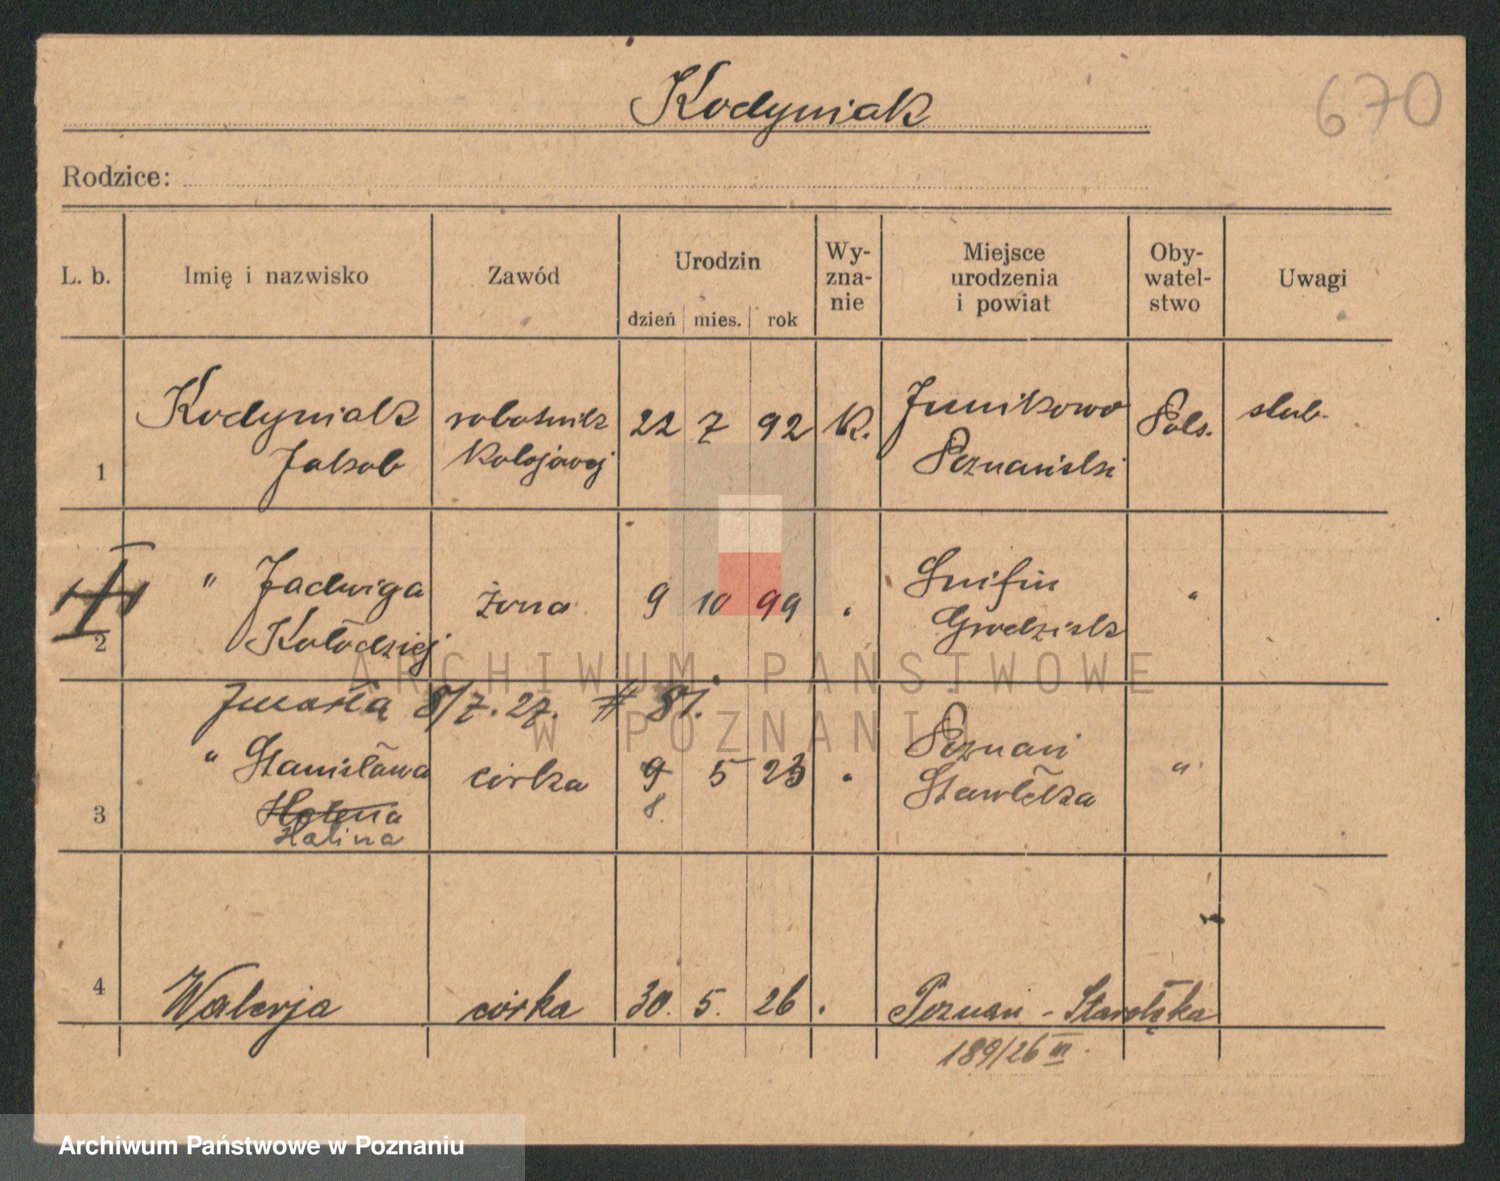 Kodyniak
670
Rodzice:
L. b. Imię i nazwisko Zawód Urodzin dzień mies. rok Wy-zna-nie Miejsce urodzenia i powiat Oby-watel-stwo Uwagi
Kodyniak robotnik 22 7 92 K. Junikowo Pols. slub.
1 Jakob kolejowy Poznański
" Jadwiga żona 9 10 99 . "
2 Kołodziej Grodzisk
Zmarła 8/7. 27. # 81.
" Stanisława córka 9 5 23 . Poznań "
3 Helena 8. Starołęka
Halina
4 Walerja córka 30. 5. 26 . Poznań - Starołęka
189/26 III.
ARCHIWUM PAŃSTWOWE
W POZNANIU
Archiwum Państwowe w Poznaniu